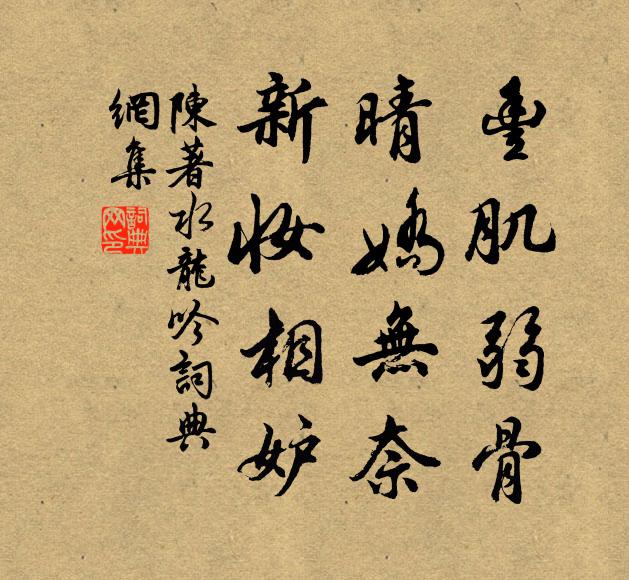 豐肌弱骨
晴嬌無奈
新妝相妒
陳著水龍吟詞典
網集
詞典
网印